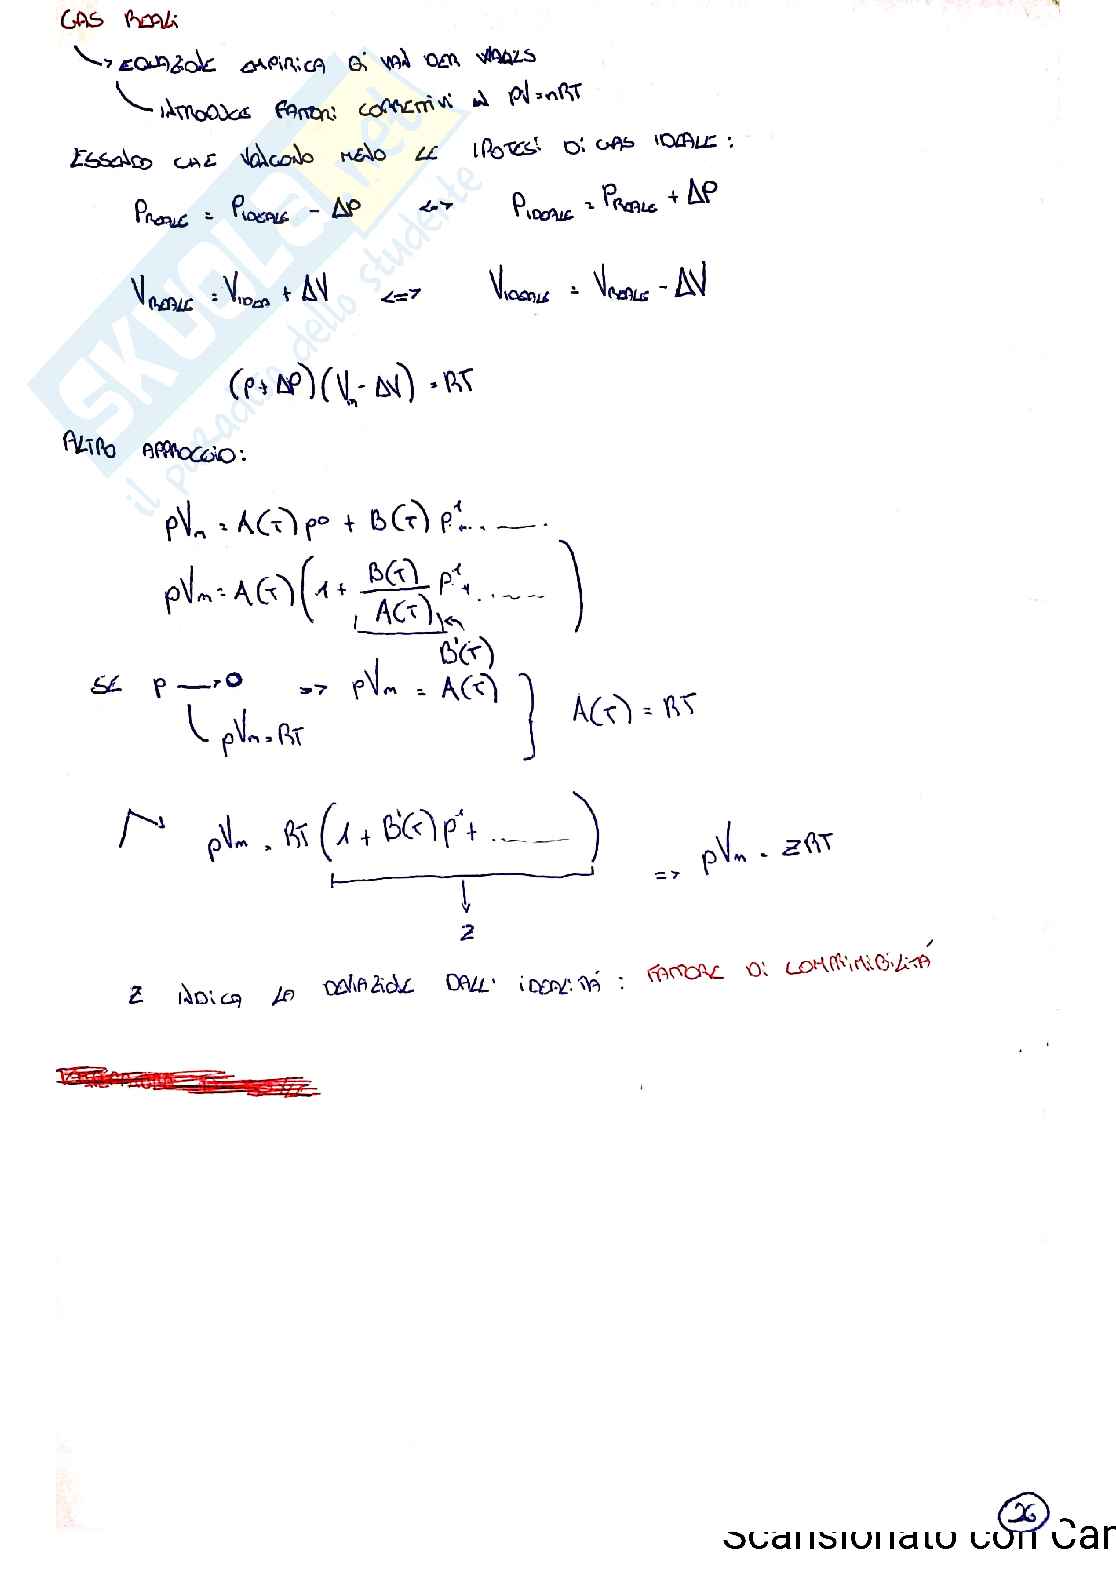 GAS REALI
↳ EQUAZIONE EMPIRICA DI VAN DER WAALS
↳ INTRODUCE FATTORI CORRETTIVI IN pV=nRT
ESSENDO CHE VALGONO MENO LE IPOTESI DI GAS IDEALE:
P_REALE = P_IDEALE - ΔP <-> P_IDEALE = P_REALE + ΔP
V_REALE = V_IDEA + ΔV <=> V_IDEALE = V_REALE - ΔV
(P + ΔP)(V_m - ΔV) = RT
ALTRO APPROCCIO:
pV_m = A(T) p^0 + B(T) p^1 ...
pV_m = A(T) (1 + B(T)/A(T) p^1 + ...)
B'(T)
SE p → 0 => pV_m = A(T) } A(T) = RT
pV_m = RT
pV_m = RT (1 + B'(T) p^1 + ...) => pV_m = ZRT
Z
Z INDICA LA DEVIAZIONE DALL'IDEALITÁ: FATTORE DI COMPRIMIBILITÁ
26
Scansionato con Cam
SKUOLA.net
il paradiso dello studente